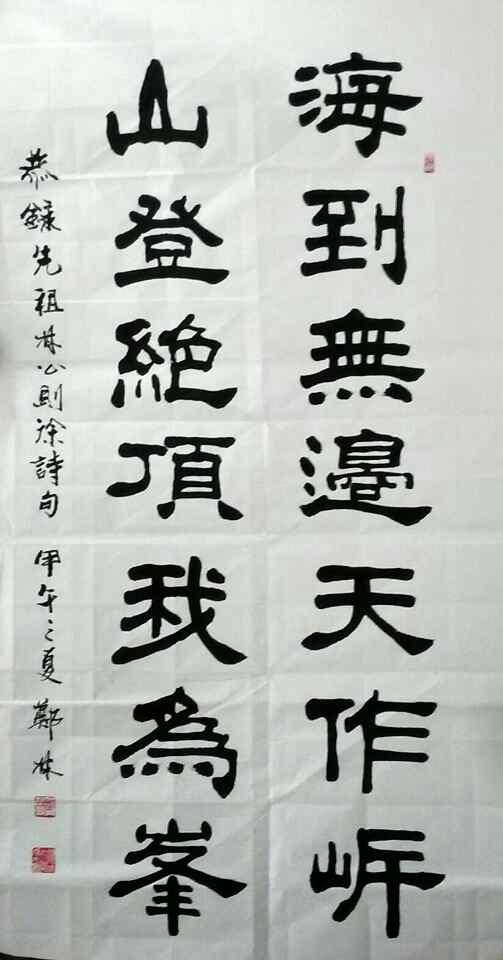 海到無邊天作岍
山登絶頂我為峯
恭錄先祖林公則徐詩句 甲午之夏 鄭林